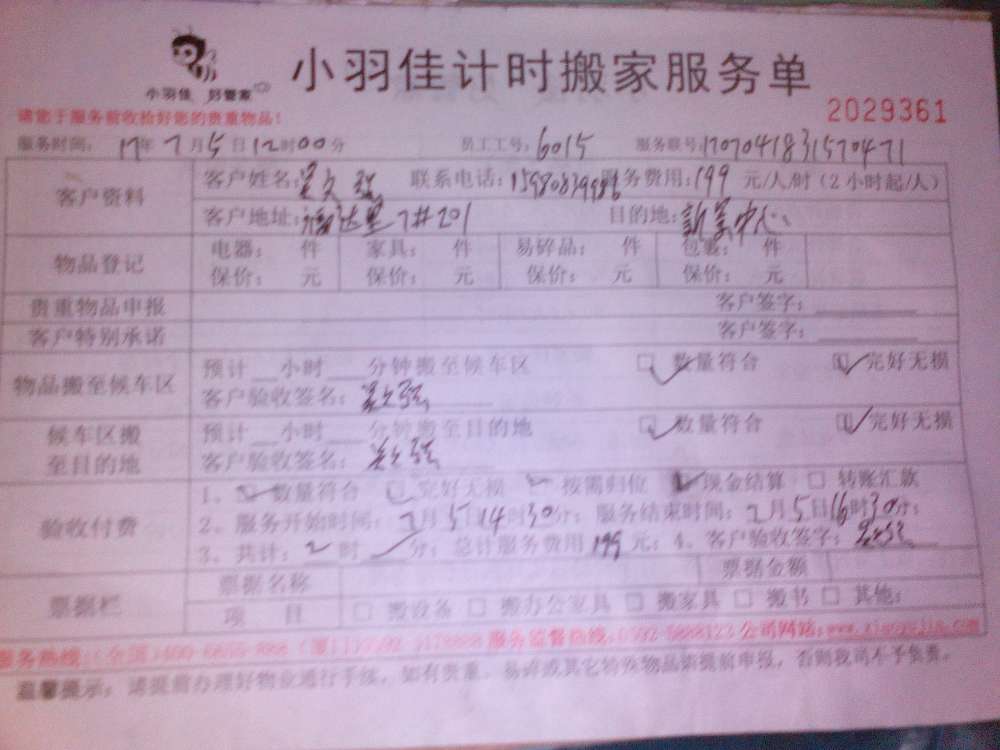 小羽佳 好管家
小羽佳计时搬家服务单
请您于服务前收拾好您的贵重物品!
2029361
服务时间: 17年7月5日12时00分 员工工号: 6015 服务联号: 1707041831570471
客户资料
客户姓名: 吴文强 联系电话: 服务费用: 199 元/人/时(2小时起/人)
客户地址: 福达里7#201 目的地: 新景中心
物品登记
电器: 件 家具: 件 易碎品: 件 包装: 件
保价: 元 保价: 元 保价: 元 保价: 元
贵重物品申报 客户签字:
客户特别承诺 客户签字:
物品搬至候车区
预计__小时___分钟搬至候车区 数量符合 完好无损
客户验收签名: 吴文强
候车区搬至目的地
预计__小时___分钟搬至目的地 数量符合 完好无损
客户验收签名: 吴文强
验收付费
1、数量符合 完好无损 按需归位 现金结算 转账汇款
2、服务开始时间: 7月5日14时30分; 服务结束时间: 7月5日16时30分;
3、共计: 2时 分; 总计服务费用 199 元; 4、客户验收签字: 吴文强
票据栏
票据名称 票据金额
项目 搬设备 搬办公家具 搬家具 搬书 其他:
服务热线: 服务监督热线: 公司网站: www.xiaoyujia.com
温馨提示: 请提前办理好物业通行手续, 如有贵重、易碎或其它特殊物品请提前申报, 否则我司不予负责。